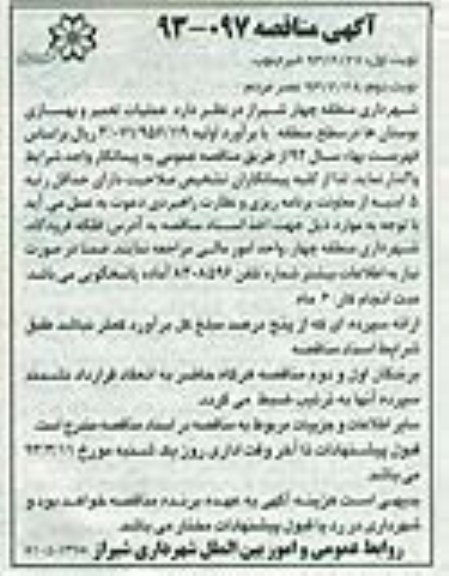 آگهی مناقصه ۰۹۷-۹۳
نوبت اول:
نوبت دوم: عصر مردم
شهرداری منطقه چهار شیراز در نظر دارد عملیات تعمیر و بهسازی
بوستان ها در سطح منطقه با برآورد اولیه ریال براساس
فهرست بهاء سال ۹۳ از طریق مناقصه عمومی به پیمانکار واجد شرایط
واگذار نماید. لذا از کلیه پیمانکاران تشخیص صلاحیت دارای حداقل رتبه
۵ ابنیه از معاونت برنامه ریزی و نظارت راهبردی دعوت به عمل می آید
با توجه به موارد ذیل جهت اخذ اسناد مناقصه به آدرس: فلکه فرودگاه،
شهرداری منطقه چهار، واحد امور مالی مراجعه نمایند. ضمنا در صورت
نیاز به اطلاعات بیشتر شماره تلفن آماده پاسخگویی می باشد.
مدت انجام کار: ماه
ارائه سپرده ای که از پنج درصد مبلغ کل برآورد کمتر نباشد طبق
شرایط اسناد مناقصه
برندگان اول و دوم مناقصه هرگاه حاضر به انعقاد قرارداد نشدند
سپرده آنها به ترتیب ضبط می گردد.
سایر اطلاعات و جزییات مربوط به مناقصه در اسناد مناقصه مندرج است.
قبول پیشنهادات تا آخر وقت اداری روز یک شنبه مورخ
می باشد.
بدیهی است هزینه آگهی به عهده برنده مناقصه خواهد بود و
شهرداری در رد یا قبول پیشنهادات مختار می باشد.
روابط عمومی و امور بین الملل شهرداری شیراز